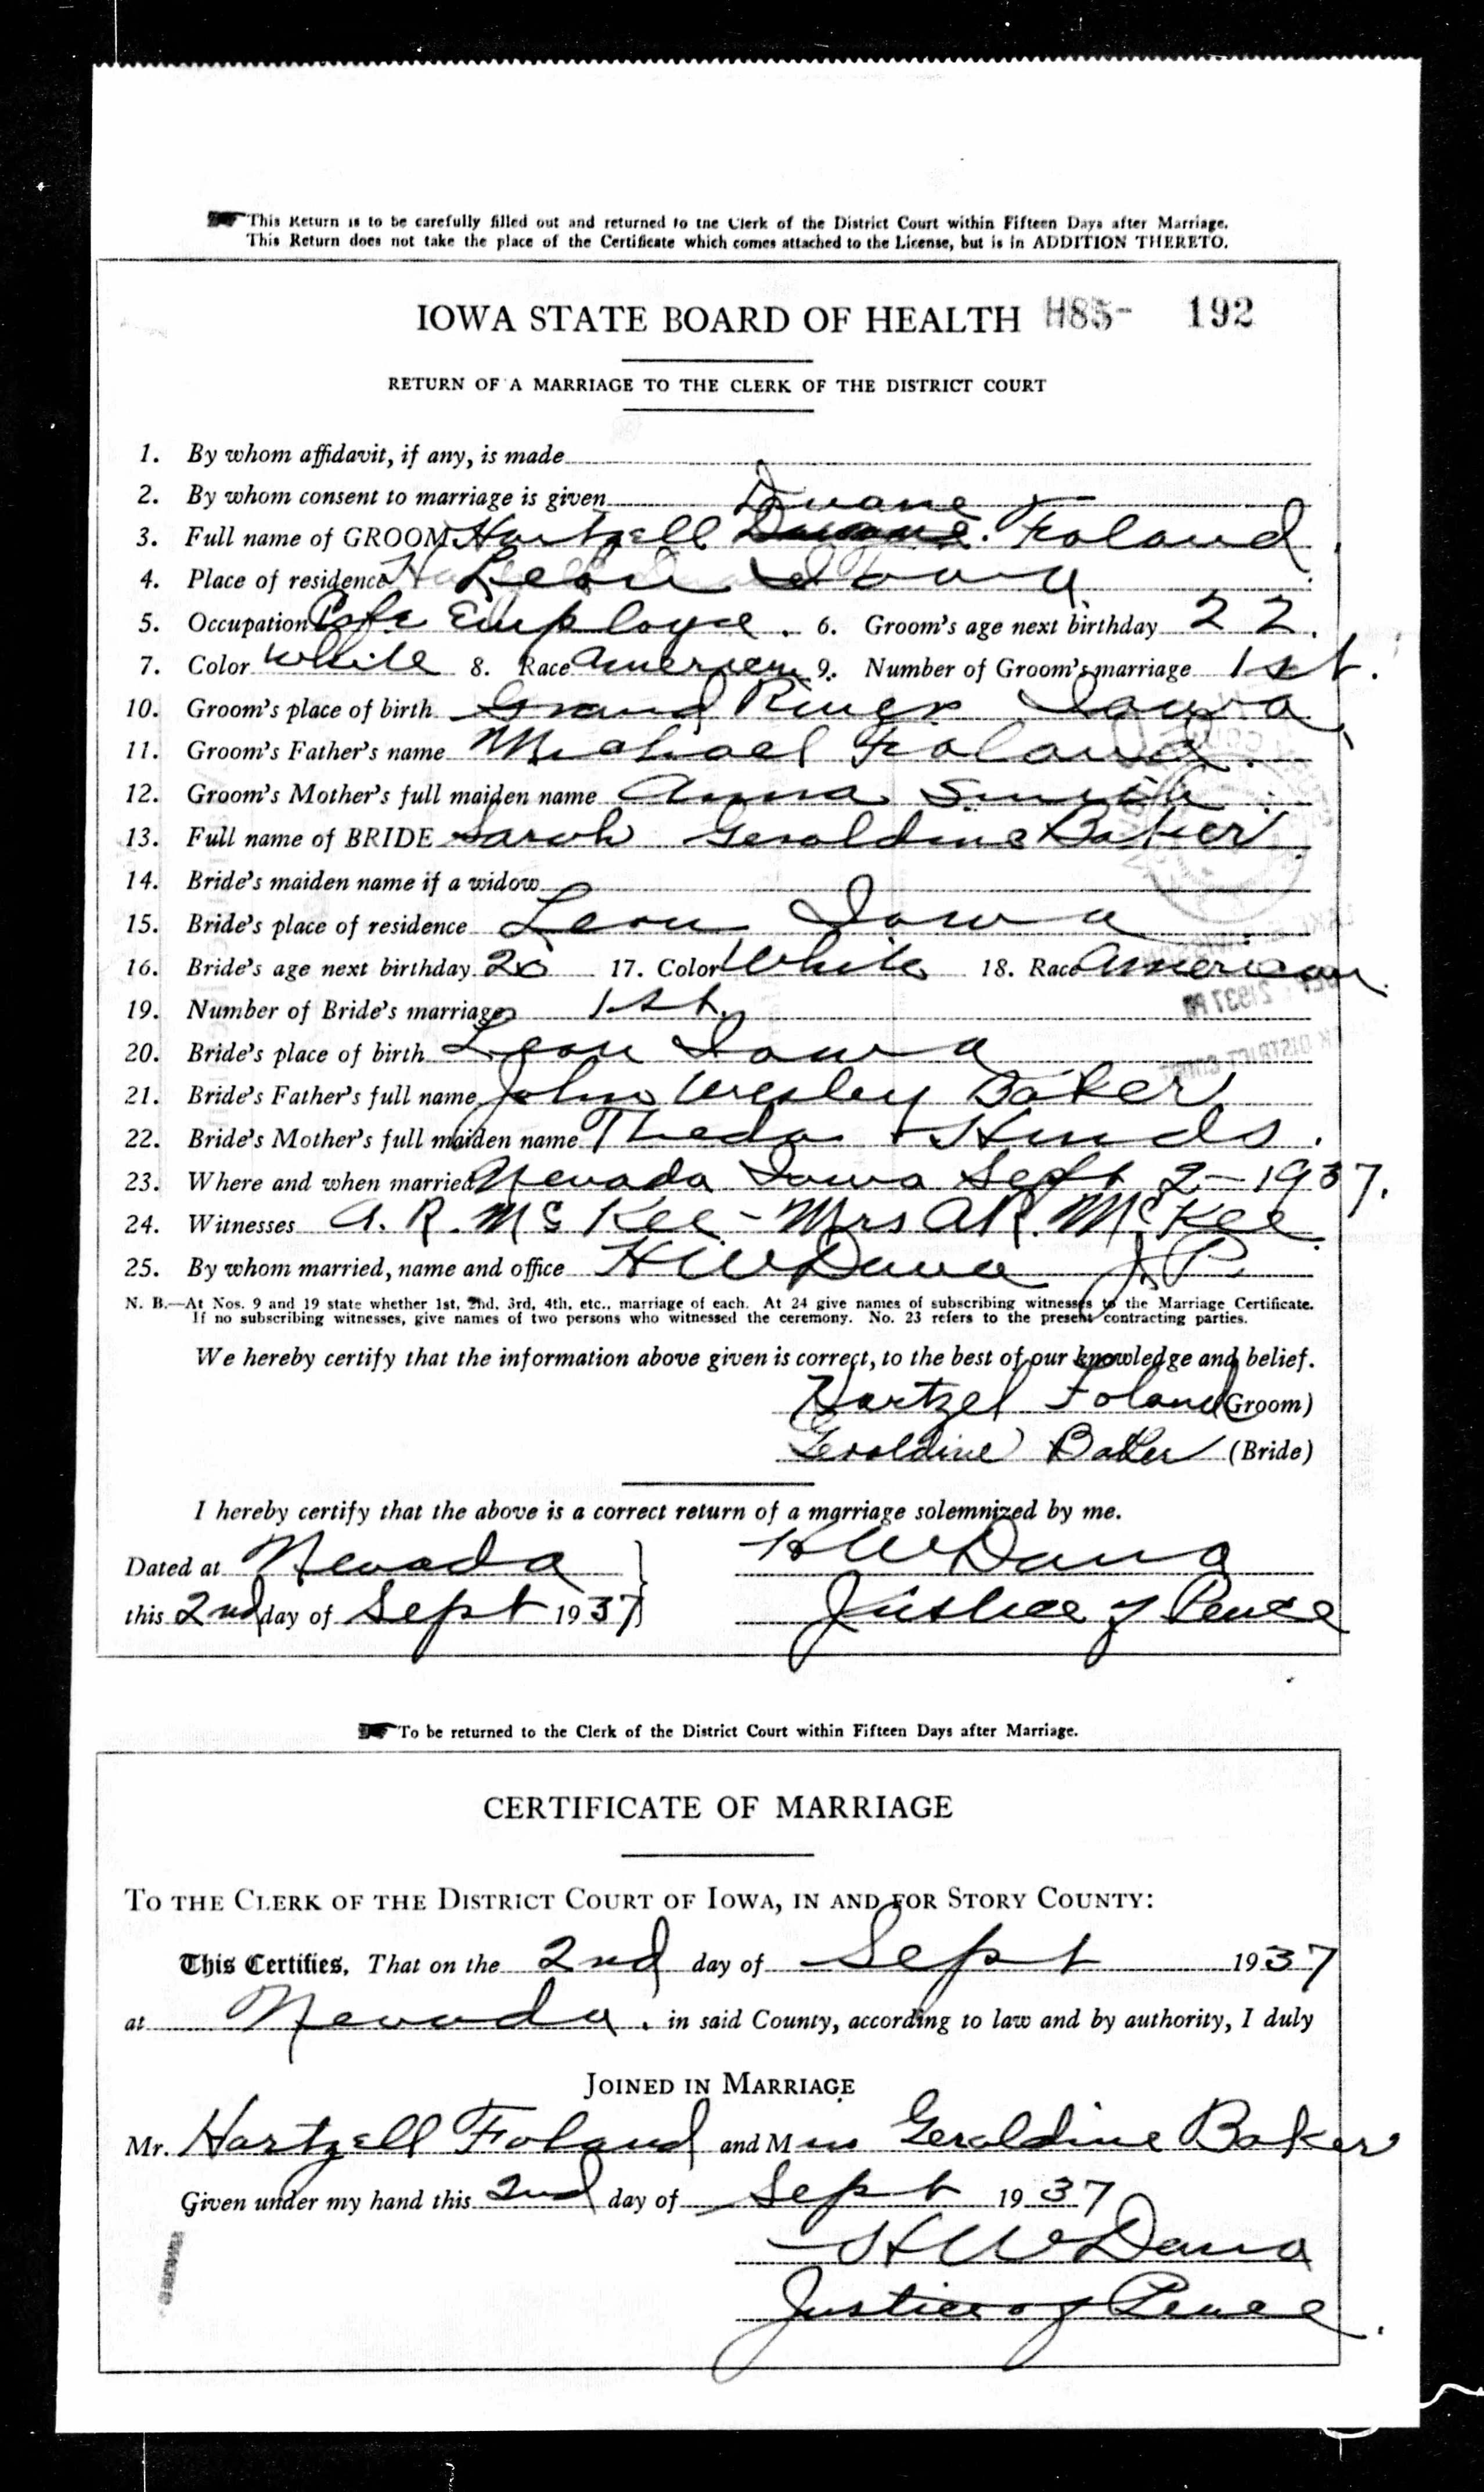 This Return is to be carefully filled out and returned to the Clerk of the District Court within Fifteen Days after Marriage.
This Return does not take the place of the Certificate which comes attached to the License, but is in ADDITION THERETO.
IOWA STATE BOARD OF HEALTH H85- 192
RETURN OF A MARRIAGE TO THE CLERK OF THE DISTRICT COURT
1. By whom affidavit, if any, is made
2. By whom consent to marriage is given
Duane
3. Full name of GROOM Hartzell Foland
4. Place of residence Leon Iowa
5. Occupation Cafe Employee. 6. Groom's age next birthday 22.
7. Color White 8. Race American 9. Number of Groom's marriage 1st.
10. Groom's place of birth Grand River Iowa
11. Groom's Father's name Michael Foland.
12. Groom's Mother's full maiden name Anna Smith
13. Full name of BRIDE Sarah Geraldine Baker
14. Bride's maiden name if a widow
15. Bride's place of residence Leon Iowa
16. Bride's age next birthday 20 17. Color White 18. Race American
19. Number of Bride's marriage 1st.
20. Bride's place of birth Leon Iowa
21. Bride's Father's full name John Wesley Baker
22. Bride's Mother's full maiden name Theda Hinds.
23. Where and when married Nevada Iowa Sept 2-1937.
24. Witnesses A. R. McKee - Mrs A R. McKee
25. By whom married, name and office H W Dana J. P.
N. B.—At Nos. 9 and 19 state whether 1st, 2nd, 3rd, 4th, etc., marriage of each. At 24 give names of subscribing witnesses to the Marriage Certificate.
If no subscribing witnesses, give names of two persons who witnessed the ceremony. No. 23 refers to the present contracting parties.
We hereby certify that the information above given is correct, to the best of our knowledge and belief.
Hartzel Foland (Groom)
Geraldine Baker (Bride)
I hereby certify that the above is a correct return of a marriage solemnized by me.
Dated at Nevada H W Dana
this 2nd day of Sept 1937 Justice of Peace
To be returned to the Clerk of the District Court within Fifteen Days after Marriage.
CERTIFICATE OF MARRIAGE
TO THE CLERK OF THE DISTRICT COURT OF IOWA, IN AND FOR STORY COUNTY:
This Certifies, That on the 2nd day of Sept 1937
at Nevada, in said County, according to law and by authority, I duly
JOINED IN MARRIAGE
Mr. Hartzell Foland and Miss Geraldine Baker
Given under my hand this 2nd day of Sept 1937
H W Dana
Justice of Peace.